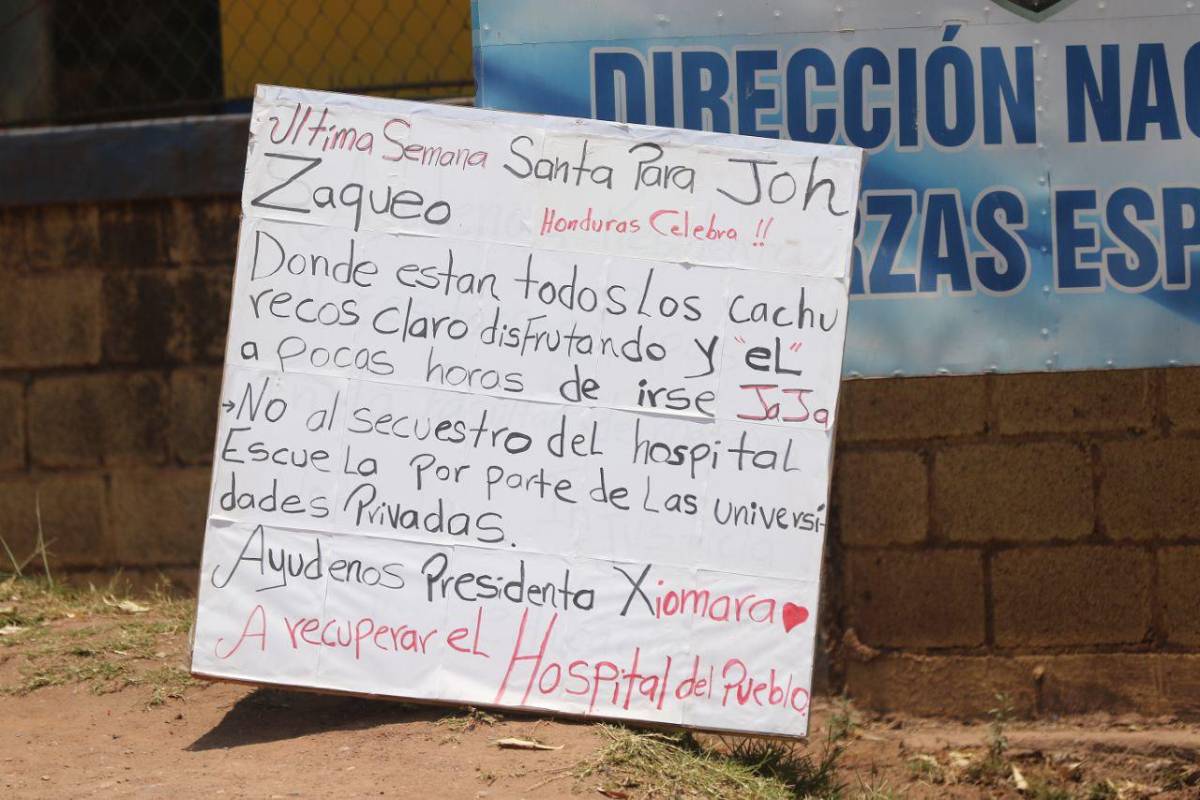 Ultima Semana Santa Para Joh
Zaqueo
Honduras Celebra !!
Donde estan todos Los cachu
recos claro disfrutando y "eL"
a pocas horas de irse JaJa
→No al secuestro del hospital
Escuela por parte de Las universi-
dades Privadas.
Ayudenos Presidenta Xiomara♥
A recuperar el Hospital del Pueblo
DIRECCIÓN NAC
RZAS ESP